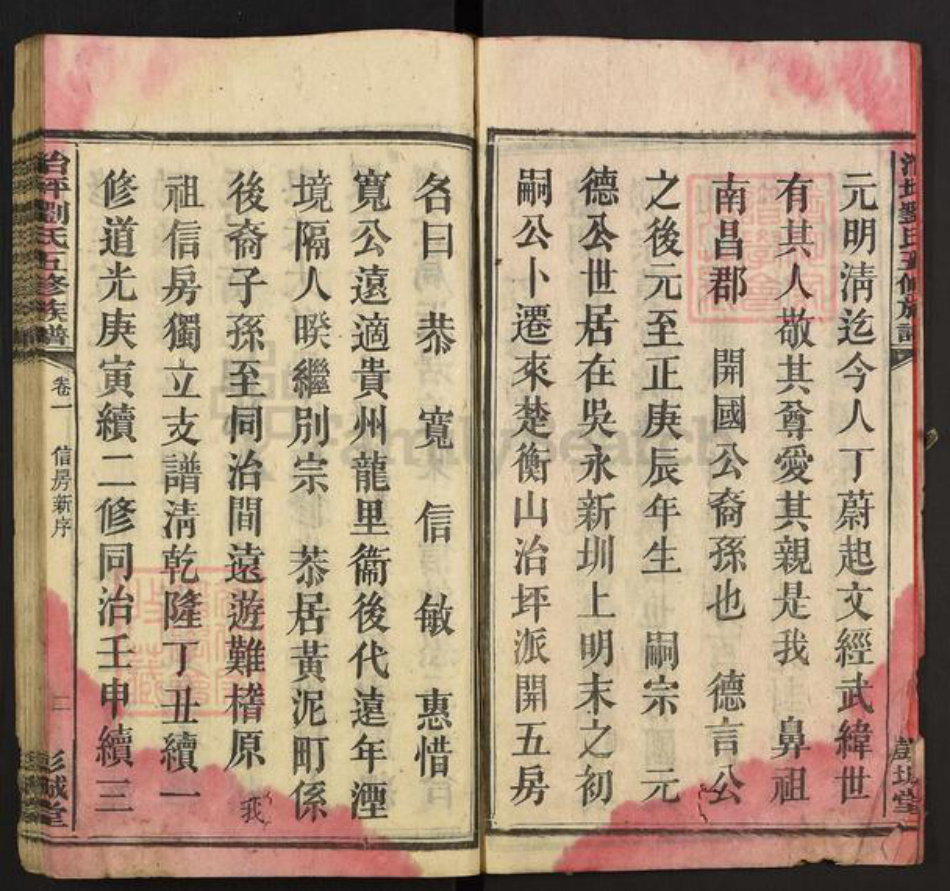 元明淸迄今人丁蔚起文經武緯世
有其人敬其尊愛其親是我 鼻祖
南昌郡 開國公裔孫也 德言公
之後元至正庚辰年生 嗣宗 元
德公世居在吳永新圳上明末之初
嗣公卜遷來楚衡山治坪派開五房
名曰 恭 寬 信 敏 惠惜
寬公遠適貴州龍里衞後代遠年湮
境隔人暌繼別宗 恭居黃泥町係
後裔子孫至同治間遠遊難稽原 我
祖信房獨立支譜淸乾隆丁丑續一
修道光庚寅續二修同治壬申續三
治坪劉氏五修族譜
卷一 信房新序
二
彭城堂
FamilySearch